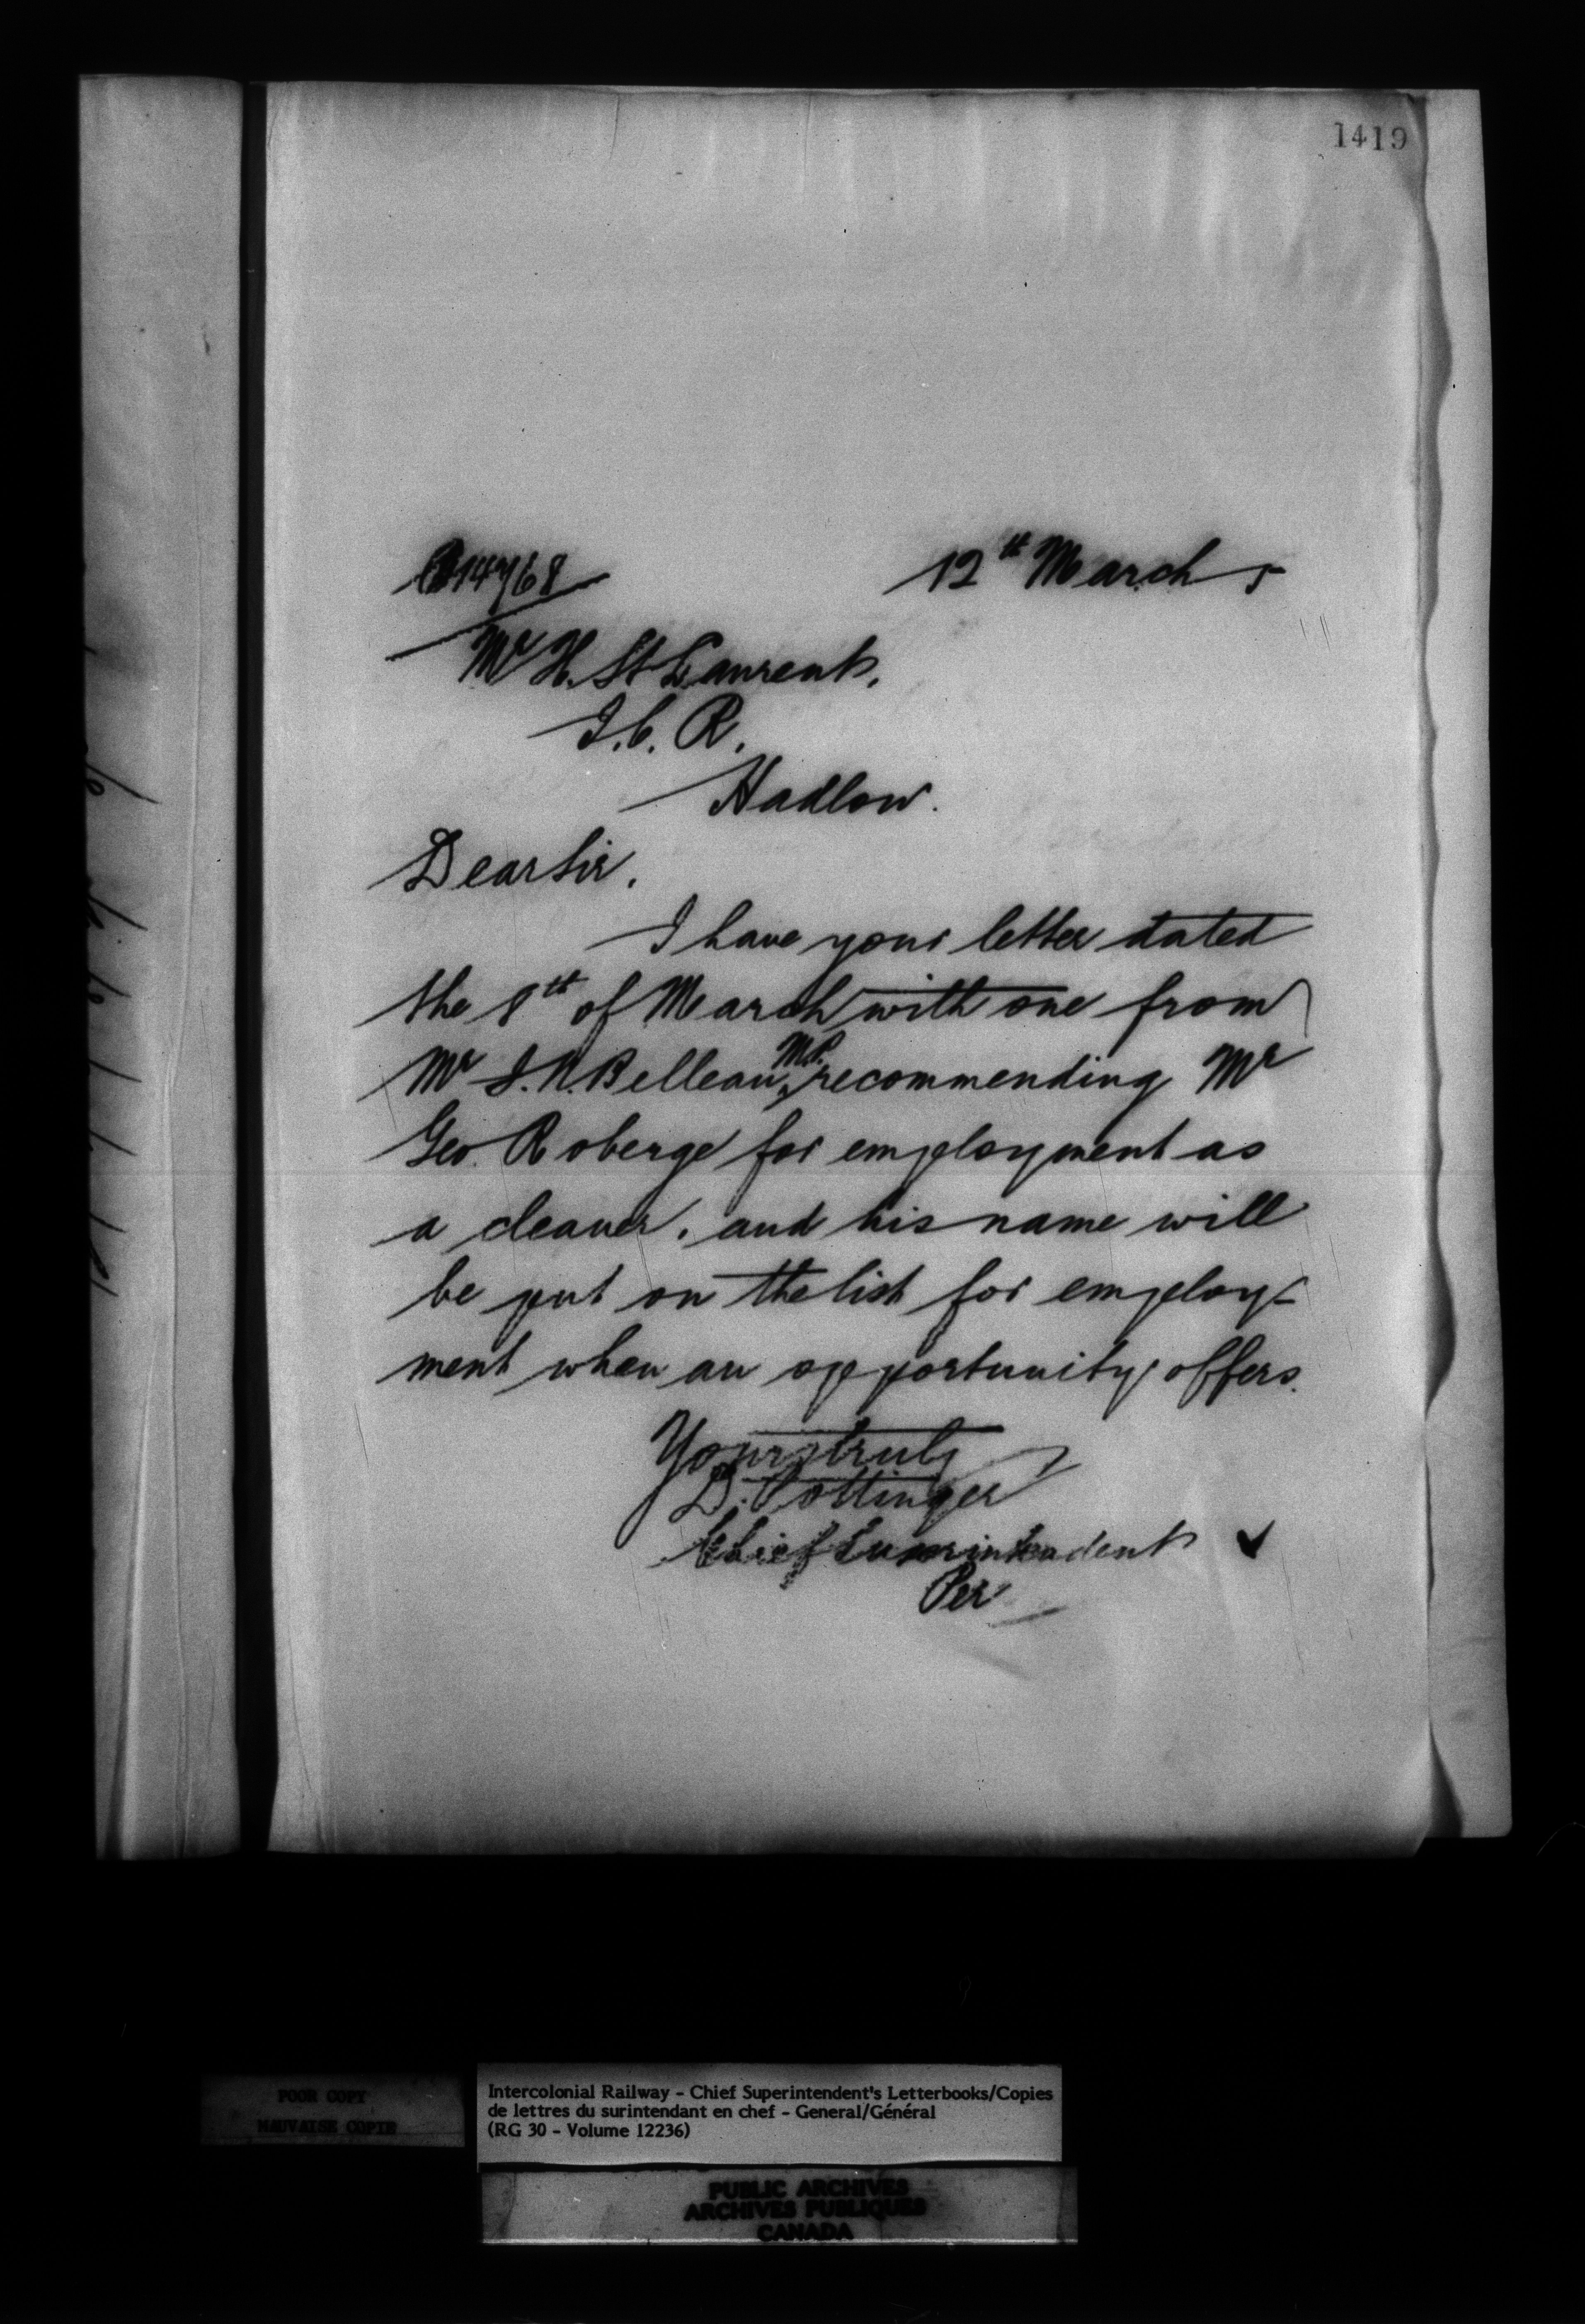 1419
14768
12th March 5
Mr H. St Laurent,
I.C.R.
Hadlow.
Dear Sir,
I have your letter dated
the 8th of March with one from
M.P.
Mr I.N. Belleau, recommending Mr
Geo. Roberge for employment as
a cleaner, and his name will
be put on the list for employ-
ment when an opportunity offers.
Yours truly
D. Pottinger
Chief Superintendent
Per
POOR COPY
MAUVAISE COPIE
Intercolonial Railway - Chief Superintendent's Letterbooks/Copies
de lettres du surintendant en chef - General/Général
(RG 30 - Volume 12236)
PUBLIC ARCHIVES
ARCHIVES PUBLIQUES
CANADA